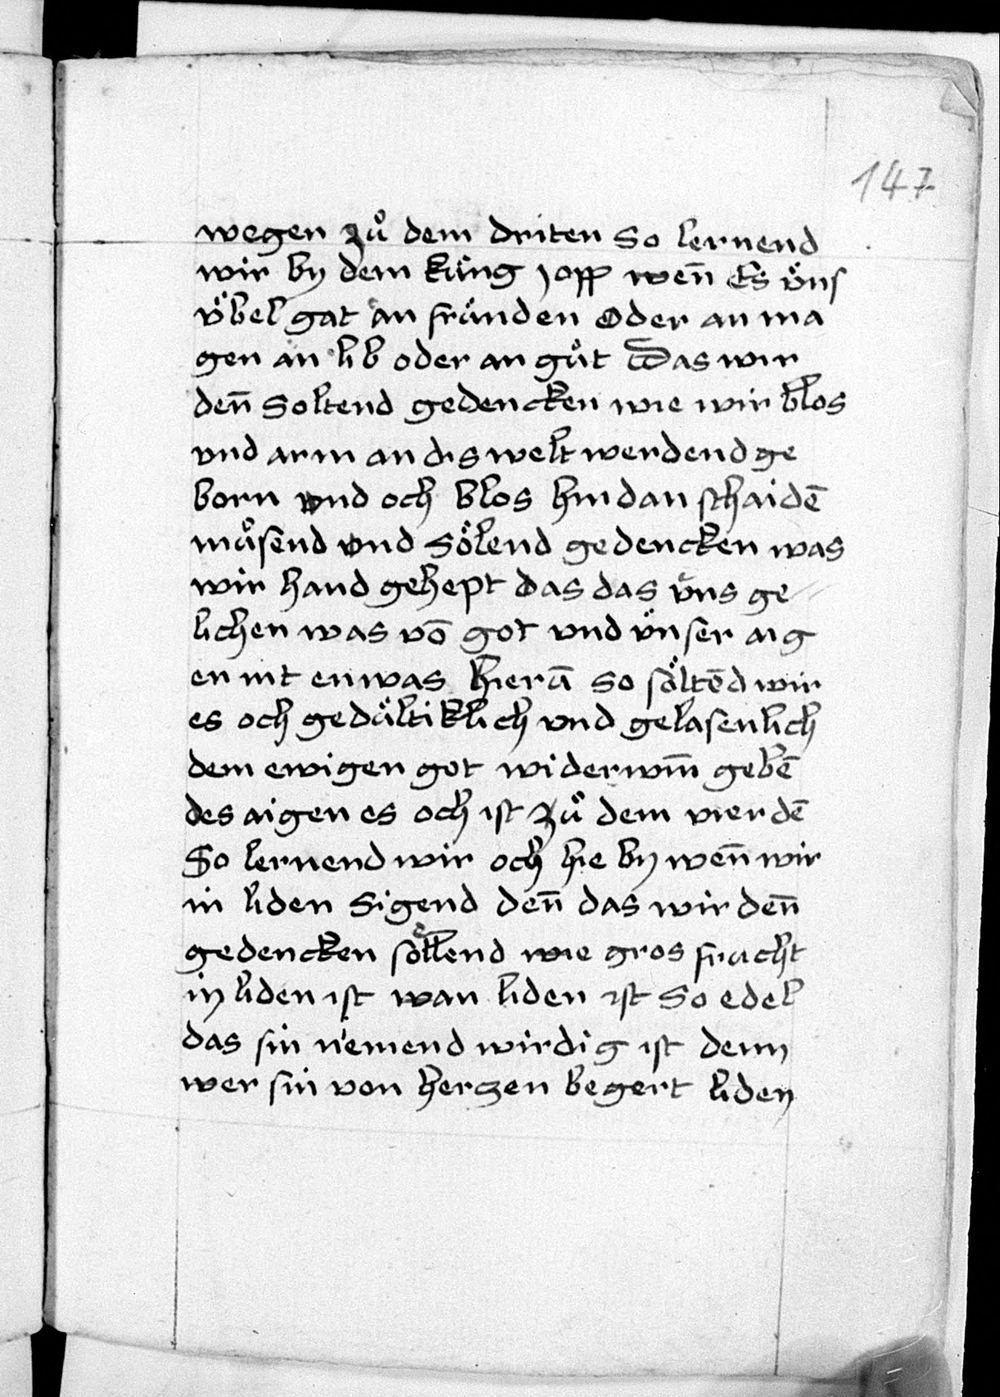 147
wegen zuͦ dem driten So lernend
wir by dem küng Jopp wen̄ Es v̈ns
v̈bel gat an fründen Oder an ma
gen an lib oder an guͦt Das wir
den̄ Soltend gedencken wie wir blos
vnd arm an dis welt werdend ge
born vnd och blos hindan schaidē
muͦsend vnd Sölend gedencken was
wir hand gehept Das das v̈ns ge
lichen was vō got vnd v̈nser aig
en nit enwas hierā so söltēd wir
es och gedültiklich vnd gelasenlich
dem ewigen got widerwm̄ gebē
des aigen es och ist zuͦ dem vierdē
So lernend wir och hie by wen̄ wir
in liden Sigend den̄ das wir den̄
gedencken söllend wie gros frucht
in liden ist wan liden ist So edel
das sin niemend wirdig ist denn
wer sin von herczen begert liden